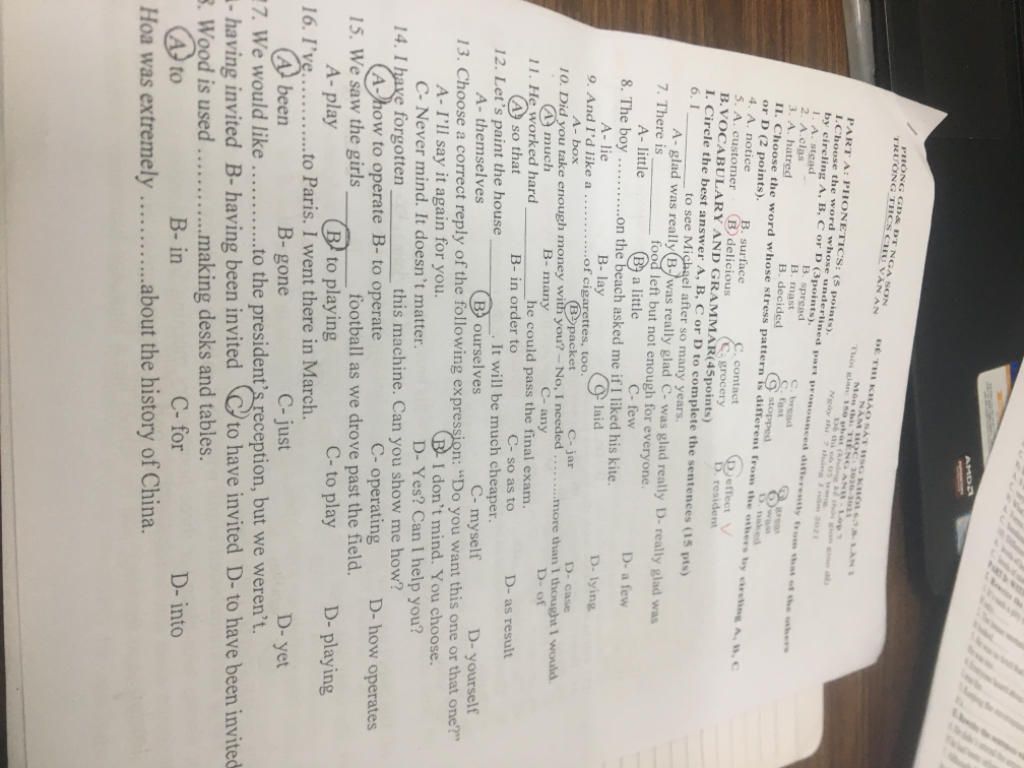 PHÒNG GD& ĐT NGA SƠN
TRƯỜNG THCS CHU VĂN AN
ĐỀ THI KHẢO SÁT HSG KHỐI 6,7,8- LẦN 1
NĂM HỌC: 2020-2021
Môn thi: TIẾNG ANH - Lớp 7
Thời gian: 150 phút
Ngày thi: 7 tháng 3 năm 2021
PART A: PHONETICS: (5 points).
I.Choose the word whose underlined part pronounced differently from that of the others
by circling A, B, C or D (3points).
1. A. stead B. spread C. bread D. great
2. A.clas B. mast C. fast D. wast
3. A. hatred B. decided C. stopped D. naked
II. Choose the word whose stress pattern is different from the others by circling A, B, C
or D (2 points).
4. A. notice B. surface C. contact D. effect
5. A. customer B. delicious C. grocery D. resident
B.VOCABULARY AND GRAMMAR(45points)
I. Circle the best answer A, B, C or D to complete the sentences (15 pts)
6. I ________ to see Michael after so many years.
A- glad was really B- was really glad C- was glad really D- really glad was
7. There is ________ food left but not enough for everyone.
A- little B- a little C- few D- a few
8. The boy ............on the beach asked me if I liked his kite.
A- lie B- lay C- laid D- lying
9. And I'd like a ............of cigarettes, too.
A- box B- packet C- jar D- case
10. Did you take enough money with you? – No, I needed .........more than I thought I would.
A- much B- many C- any D- of
11. He worked hard ________ he could pass the final exam.
A- so that B- in order to C- so as to D- as result
12. Let's paint the house ________. It will be much cheaper.
A- themselves B- ourselves C- myself D- yourself
13. Choose a correct reply of the following expression: "Do you want this one or that one?"
A- I'll say it again for you. B- I don't mind. You choose.
C- Never mind. It doesn't matter. D- Yes? Can I help you?
14. I have forgotten ________ this machine. Can you show me how?
A- how to operate B- to operate C- operating D- how operates
15. We saw the girls ________ football as we drove past the field.
A- play B- to playing C- to play D- playing
16. I've............to Paris. I went there in March.
A- been B- gone C- just D- yet
17. We would like ............to the president's reception, but we weren't.
A- having invited B- having been invited C- to have invited D- to have been invited
8. Wood is used ............making desks and tables.
A- to B- in C- for D- into
Hoa was extremely ............about the history of China.
AMD